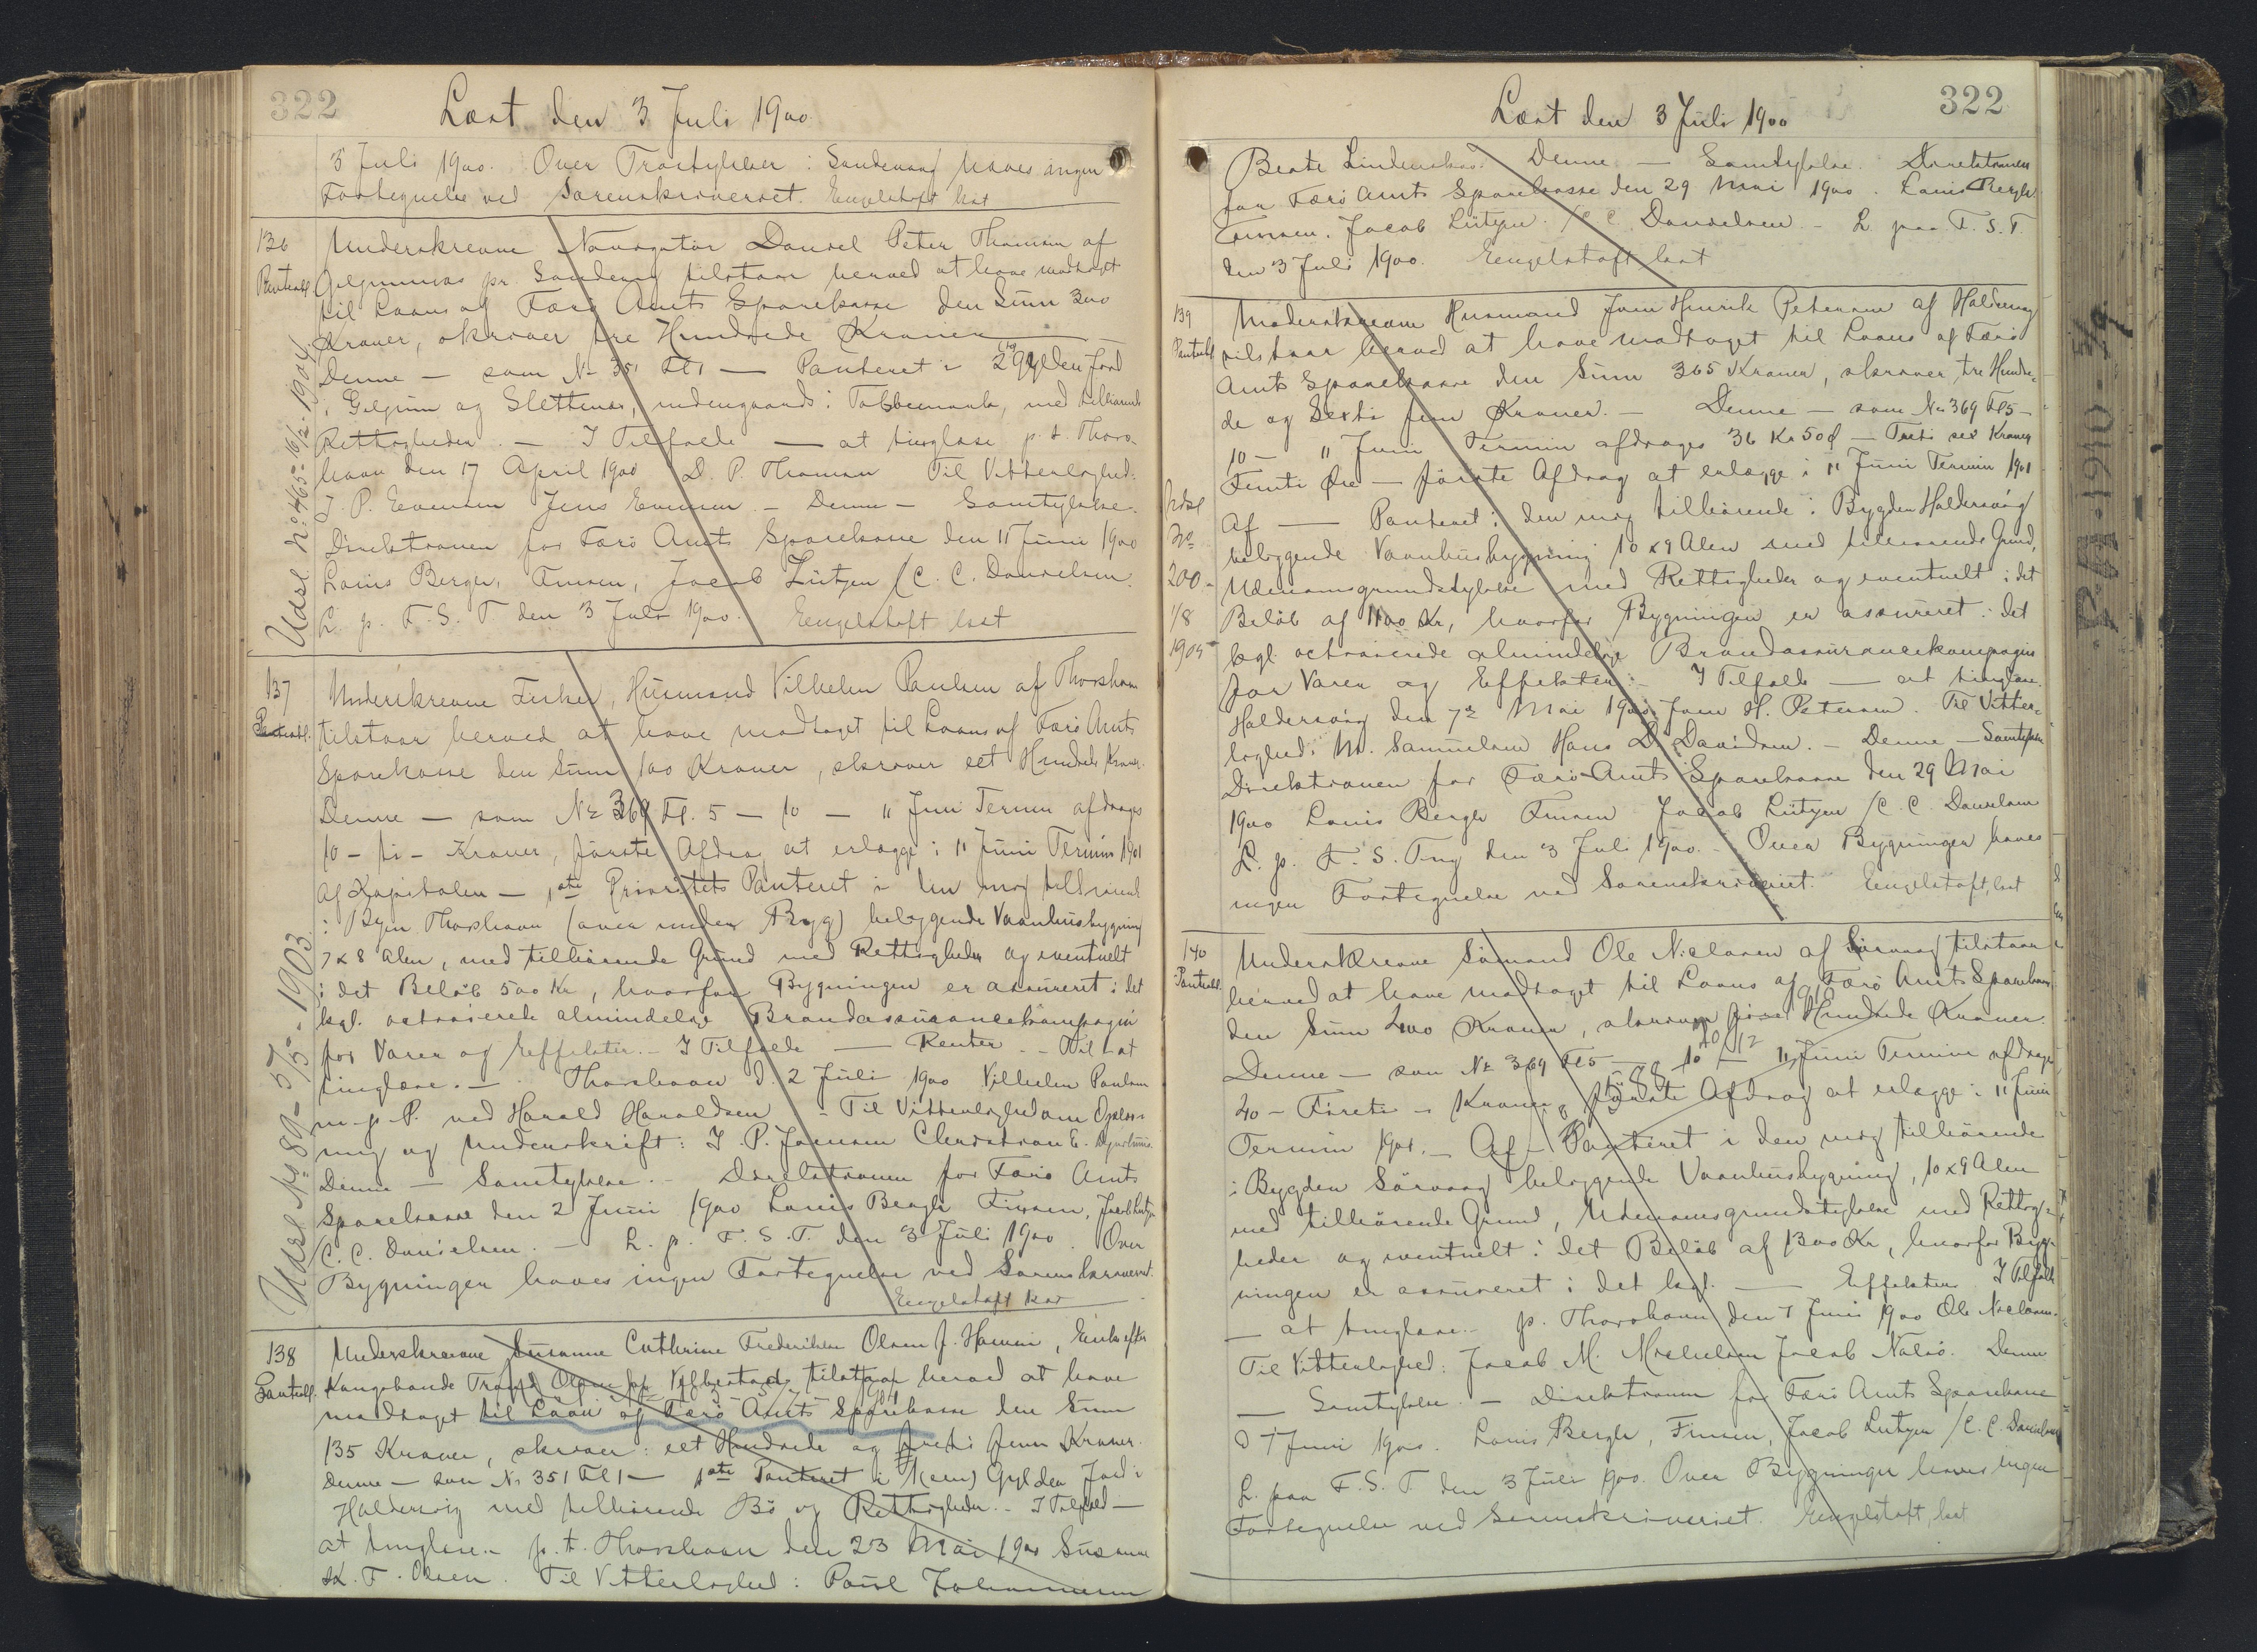 322
Læst den 3 Juli 1900
3 Juli 1900. Over Træstykker i Sandevaag haves ingen
Fortegnelse ved Sorenskriveriet. Eengelstoft kst
136
Pantobl.
Underskrevne Navigatør Daniel Peter Thomsen af
pr Sandevaag tilstaar herved at have modtaget
til Laans af Færø Amts Sparekasse den Sum 300
Kroner, skriver tre Hundrede Kroner
Denne — som No 351 Fl 1 — Panteret i 2 Gylden Jord
i Giljum og Slettenæs, udengaards i med tilhørende
Rettigheder. — I Tilfælde — at tinglæse p. t. Thors-
havn den 17 April 1900 D. P. Thomsen Til Vitterlighed:
J. P. Evensen Jens Evensen. — Denne — Samtykke.
Direktionen for Færø Amts Sparekasse den 11 Juni 1900
Louis Bergh, Finsen, Jacob Lützen / C. C. Danielsen.
L. p. F. S. T. den 3 Juli 1900. Eengelstoft kst
Udsl No 465 - 16/2 - 1904
137
Pantobl.
Underskrevne Fisker, Husmand Vilhelm Paulsen af Thorshavn
tilstaar herved at have modtaget til Laans af Færø Amts
Sparekasse den Sum 100 Kroner, skriver eet Hundrede Kroner.
Denne — som No 369 Fl. 5 — 10 — 11 Juni Termin afdrages
10 - ti - Kroner, første Afdrag at erlægge i 11 Juni Termin 1901
Af Kapitalen — 1ste Prioritets Panteret i den mig tilhørende
i Byen Thorshavn (oven under Ryg) beliggende Vaanhusbygning
7 x 8 Alen, med tilhørende Grund med Rettigheder og eventuelt
i det Beløb 500 Kr, hvorfor Bygningen er assureret i det
kgl. octroierede almindelige Brandassurancekompagni
for Varer og Effekter. — I Tilfælde — Renter. — Til at
tinglæse. — Thorshavn d. 2 Juli 1900 Vilhelm Paulsen
m. f. P. ved Harald Haraldsen — Til Vitterlighed om Oplæs-
ning og Underskrift: J. P. Joensen Christian E.
Denne — Samtykke. — Direktionen for Færø Amts
Sparekasse den 2 Juni 1900 Louis Bergh Finsen, Jacob Lützen
/ C. C. Danielsen. — L. p. F. S. T. den 3 Juli 1900. Over
Bygningen haves ingen Fortegnelse ved Sorenskriveriet.
Eengelstoft kst
Udsl No 89 - 5/5 - 1903
138
Pantobl.
Underskrevne Susanne Cathrine Frederikke Olsen f. Hansen, Enke efter
Kongsbonde Olsen pp tilstaar herved at have
modtaget til Laan af Færø Amts Sparekasse den Sum
135 Kroner, skriver: eet Hundrede og treti fem Kroner.
Denne — som No 351 Fl 1 — 1ste Panteret i 1 (een) Gylden Jord i
Haldersvig med tilhørende Bø og Rettigheder. — I Tilfæld —
at tinglæse. — p. t. Thorshavn den 23 Mai 1900 Susanne
K. F. Olsen. Til Vitterlighed: Poul Johannesen
322
Læst den 3 Juli 1900
Beate Lindenskov. Denne — Samtykke. Direktionen
for Færø Amts Sparekasse den 29 Mai 1900. Louis Bergh
Finsen. Jacob Lützen. / C. C. Danielsen. — L. paa F. S. T.
den 3 Juli 1900. Eengelstoft kst
139
Pantobl
Underskrevne Husmand Joen Henrik Petersen af Haldersvig
tilstaar herved at have modtaget til Laans af Færø
Amts Sparekasse den Sum 365 Kroner, skriver tre Hundre-
de og Sexti fem Kroner. — Denne — som No 369 Fl 5 —
10 — 11 Juni Termin afdrages 36 Kr 50 Ø — Treti sex Kroner
Femti Øre — første Afdrag at erlægge i 11 Juni Termin 1901
Af — Panteret i den mig tilhørende i Bygden Haldersvig
beliggende Vaanhusbygning 10 x 9 Alen med tilhørende Grund,
Udenomsgrundstykke med Rettigheder og eventuelt i det
Beløb af 1100 Kr, hvorfor Bygningen er assureret i det
kgl. octroierede almindelige Brandassurancekompagni
for Varer og Effekter. — I Tilfælde — at tinglæse.
Haldersvig den 7de Mai 1900. Joen H. Petersen. Til Vitter-
lighed: M. Samuelsen Hans D. Davidsen. — Denne — Samtykke
Direktionen for Færø Amts Sparekasse den 29 Mai
1900 Louis Bergh Finsen Jacob Lützen / C. C. Danielsen
L. p. F. S. Ting den 3 Juli 1900. — Over Bygningen haves
ingen Fortegnelse ved Sorenskriveriet. Eengelstoft, kst
Udsl
No
200 -
1/8
1905
140
Pantobl.
Underskrevne Sømand Ole Niclasen af Sørvaag tilstaar
herved at have modtaget til Laans af Færø Amts Sparekasse
den Sum 400 Kroner, skriver fire Hundrede Kroner.
Denne — som No 369 Fl 5 — 10 — 11 Juni Termin afdrages
40 - Fireti - Kroner, første Afdrag at erlægge i 11 Juni
Termin 1901. — Af — Panteret i den mig tilhørende
i Bygden Sørvaag beliggende Vaanhusbygning, 10 x 9 Alen
med tilhørende Grund, Udenomsgrundstykke med Rettig-
heder og eventuelt i det Beløb af 1300 Kr, hvorfor Byg-
ningen er assureret i det kgl. — Effekter I Tilfælde
— at tinglæse. — p. Thorshavn den 7 Juni 1900 Ole Niclasen.
Til Vitterlighed: Jacob M. Michelsen Jacob Nalsø. Denne
— Samtykke. — Direktionen for Færø Amts Sparekasse
d 7 Juni 1900. Louis Bergh, Finsen, Jacob Lützen / C. C. Danielsen
L. paa F. S. T. den 3 Juli 1900. Over Bygningen haves ingen
Fortegnelse ved Sorenskriveriet. Eengelstoft, kst